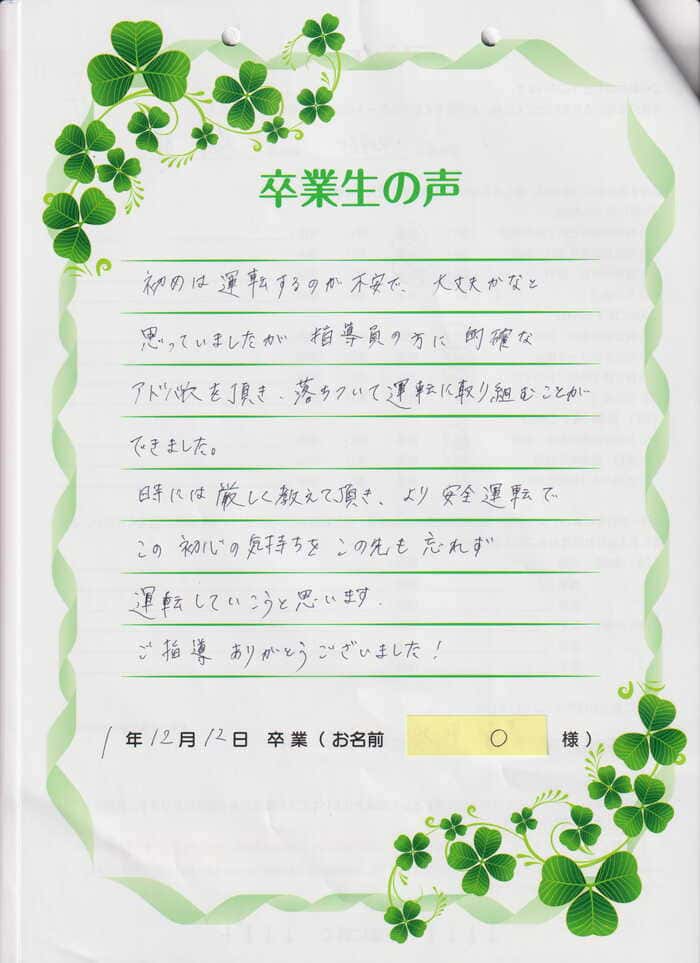 卒業生の声
初めは運転するのが不安で、大丈夫かなと
思っていましたが 指導員の方に的確な
アドバイスを頂き、落ちついて運転に取り組むことが
できました。
時には厳しく教えて頂き、より安全運転で
この初心の気持ちをこの先も忘れず
運転していこうと思います.
ご指導ありがとうございました!
1年12月12日 卒業(お名前 〇 様)